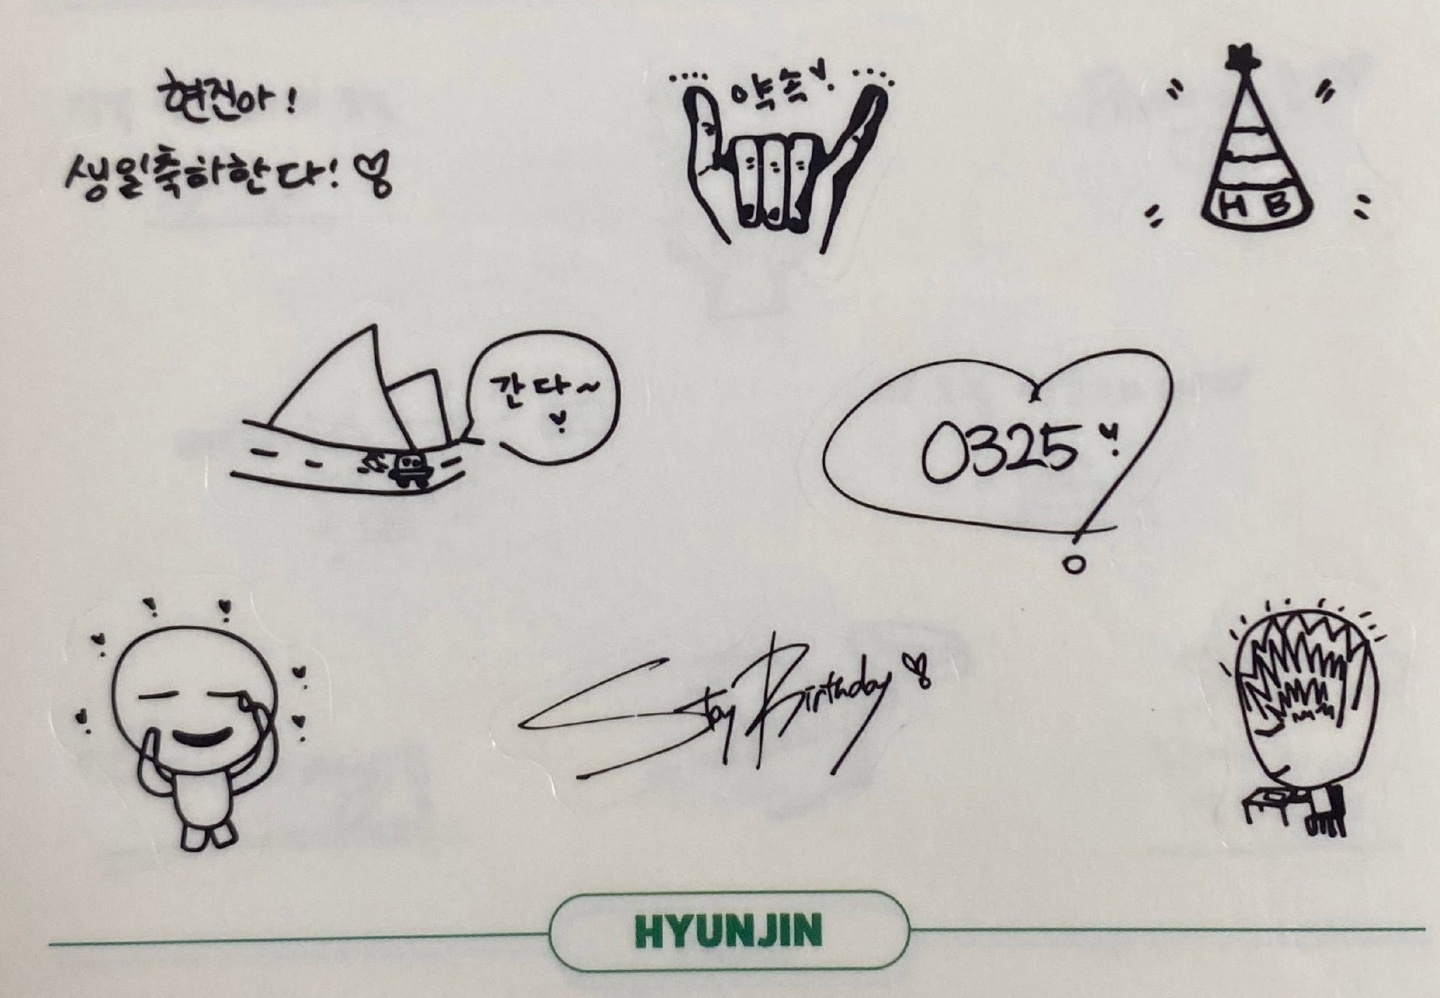 현진아!
생일축하한다!
약속
H B
간다~
0325
Stay Birthday
HYUNJIN